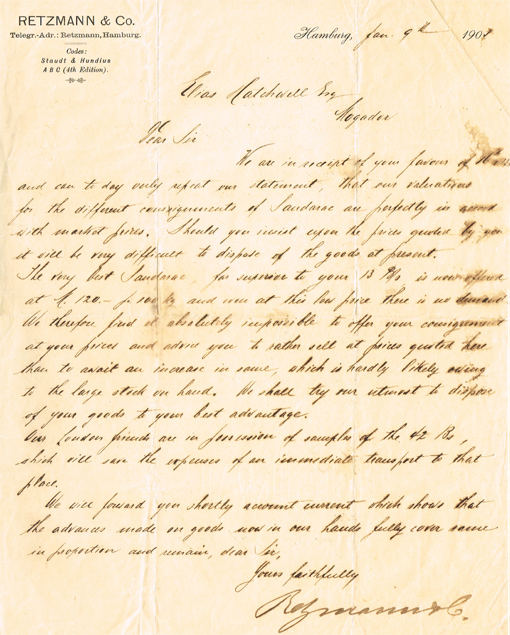 RETZMANN & Co.
Telegr.-Adr.: Retzmann, Hamburg.
Codes:
Staudt & Hundius
A B C (4th Edition).
Hamburg, Jan. 9th 1907
Esq
Mogador
Dear Sir
We are in receipt of your favour of
and can to day only repeat our statement, that our valuations
for the different consignments of Sandarac are perfectly in accord
with market prices. Should you insist upon the prices quoted by you
it will be very difficult to dispose of the goods at present.
The very best Sandarac, far superior to your 13 is now offered
at 120.- p. 100 and even at this low price there is no demand
We therefore find it absolutely impossible to offer your consignment
at your prices and advise you to rather sell at prices quoted here
than to await an increase in same, which is hardly likely owing
to the large stock on hand. We shall try our utmost to dispose
of your goods to your best advantage.
Our London friends are in possession of samples of the 42 Bs,
which will save the expenses of an immediate transport to that
place.
We will forward you shortly account current which shows that
the advances made on goods now in our hands fully cover same
in proportion and remain, dear Sir,
Yours faithfully
Retzmann & Co.